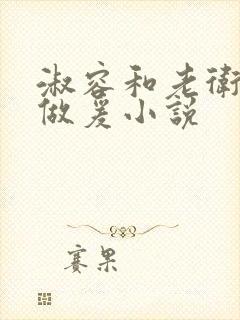 淑容和老衛
做爰小説
赛果